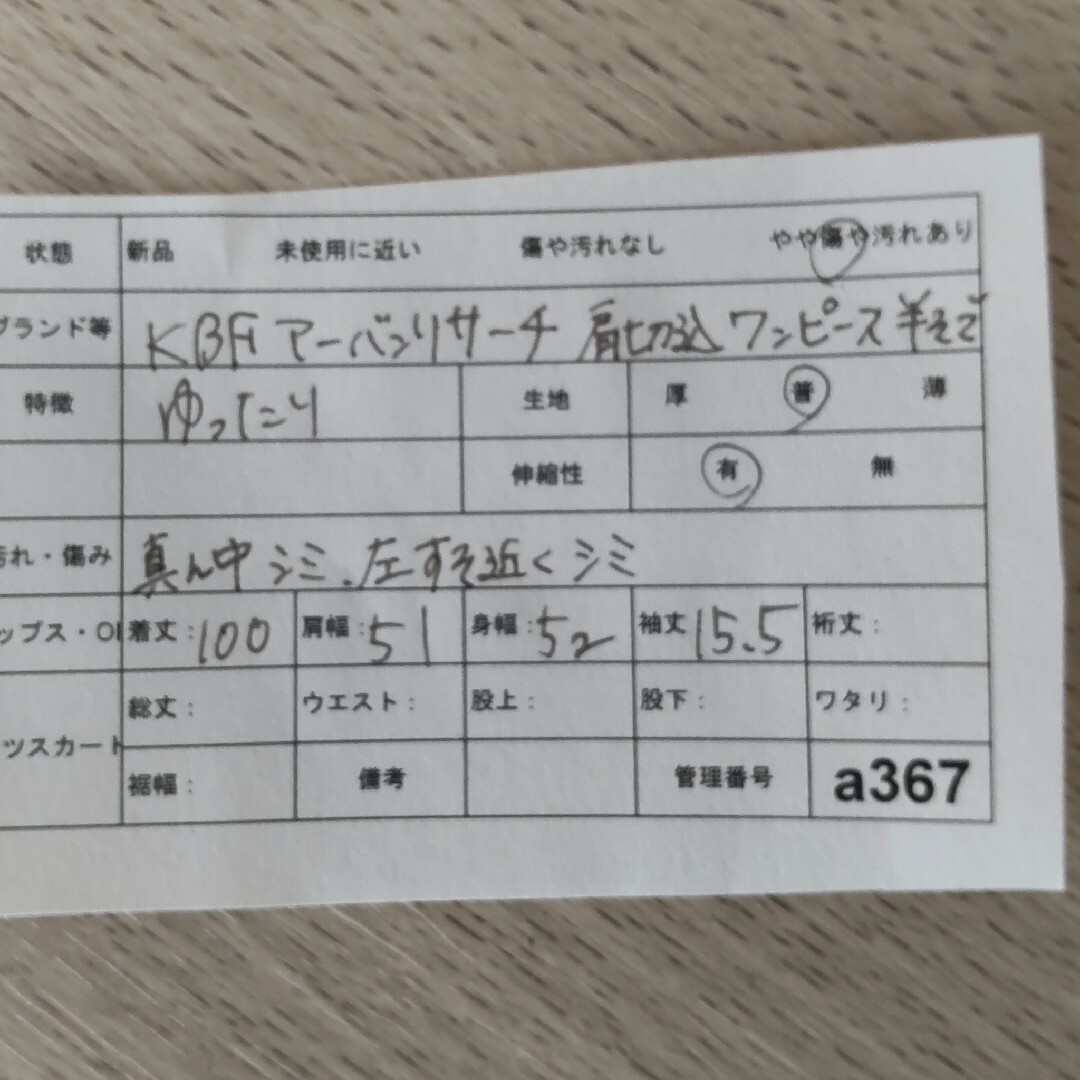 状態 新品 未使用に近い 傷や汚れなし やや傷や汚れあり
ブランド等 KBF アーバンリサーチ 肩切込 ワンピース 半そで
特徴 ゆったり 生地 厚 普 薄
伸縮性 有 無
汚れ・傷み 真ん中シミ、左すそ近くシミ
ップス・O 着丈:100 肩幅:51 身幅:52 袖丈 15.5 裄丈:
ツスカート 総丈: ウエスト: 股上: 股下: ワタリ:
裾幅: 備考 管理番号 a367